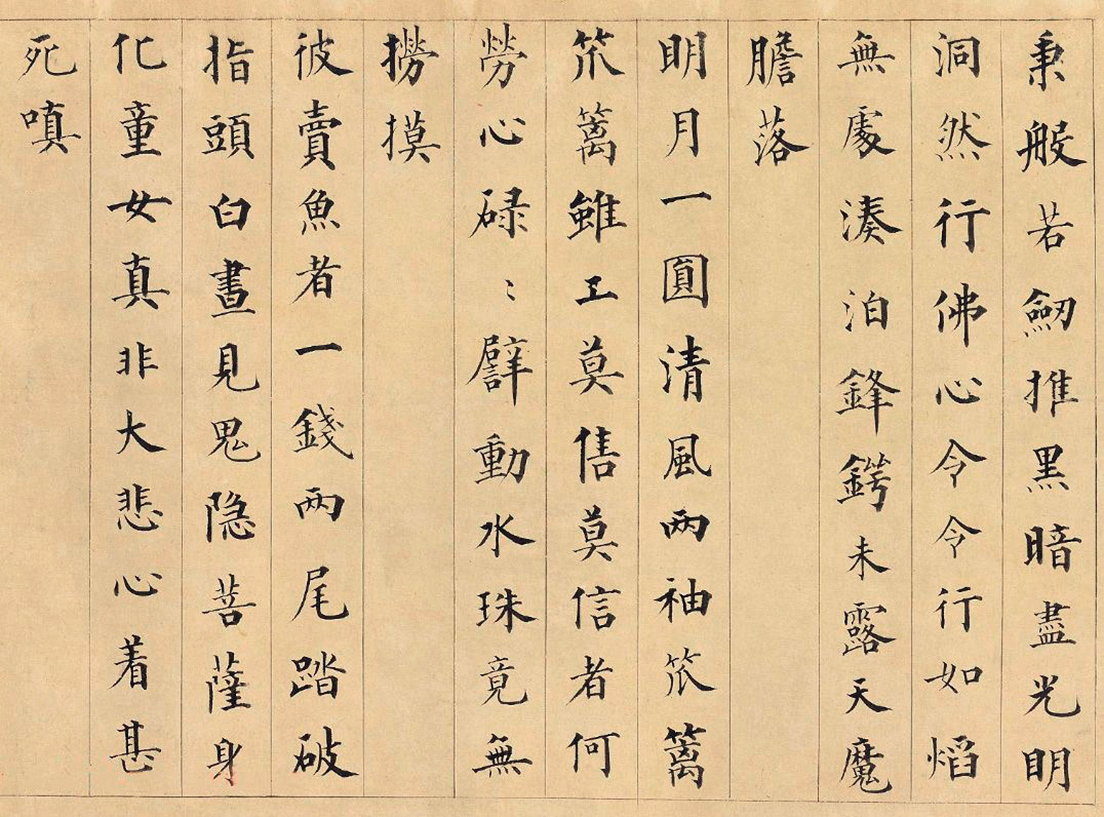 秉般若劒推黑暗盡光明
洞然行佛心令令行如熖
無處湊泊鋒鍔未露天魔
膽落
明月一圓清風两袖笊篱
笊篱雖工莫售莫信者何
勞心碌〻劈動水珠竟無
撈摸
彼賣魚者一錢两尾踏破
指頭白晝見鬼隐菩薩身
化童女真非大悲心着甚
死嗔